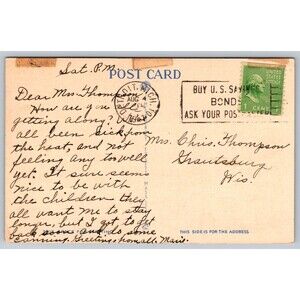 Sat. P.M.
POST CARD
Dear Mrs. Thompson
How are you
getting along? I've
all been sick from
that heat, and not
feeling any too well
yet. It sure seems
nice to be with
the children they
all want me to stay
longer, but I got to get
back soon and do some
canning. Greetings from all. Marie.
DETROIT, MICH.
AUG
BUY U.S. SAVINGS
BONDS
ASK YOUR POSTMASTER
Mrs. Chris. Thompson
Grantsburg
Wis.
THIS SIDE IS FOR THE ADDRESS